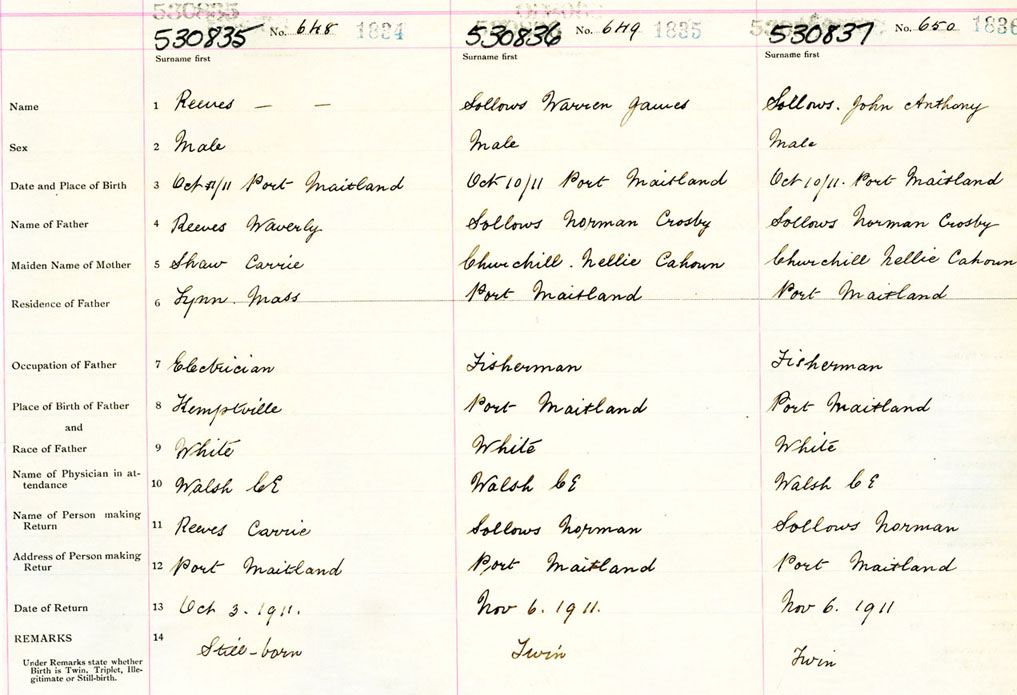 530835 No. 648 1834 530836 No. 649 1835 530837 No. 650 1836
Surname first Surname first Surname first
Name 1 Reeves — — Sollows Warren James Sollows. John Anthony
Sex 2 Male Male Male
Date and Place of Birth 3 Port Maitland Oct 10/11 Port Maitland Oct 10/11. Port Maitland
Name of Father 4 Reeves Waverly Sollows Norman Crosby Sollows Norman Crosby
Maiden Name of Mother 5 Shaw Carrie Churchill. Nellie Cahoun Churchill Nellie Cahoun
Residence of Father 6 Lynn. Mass Port Maitland Port Maitland
Occupation of Father 7 Electrician Fisherman Fisherman
Place of Birth of Father 8 Kemptville Port Maitland Port Maitland
and
Race of Father 9 White White White
Name of Physician in at-
tendance 10 Walsh C E Walsh C E Walsh C E
Name of Person making
Return 11 Reeves Carrie Sollows Norman Sollows Norman
Address of Person making
Retur 12 Port Maitland Port Maitland Port Maitland
Date of Return 13 Oct 3. 1911. Nov 6. 1911. Nov 6. 1911
REMARKS 14 Still-born Twin Twin
Under Remarks state whether
Birth is Twin, Triplet, Ille-
gitimate or Still-birth.